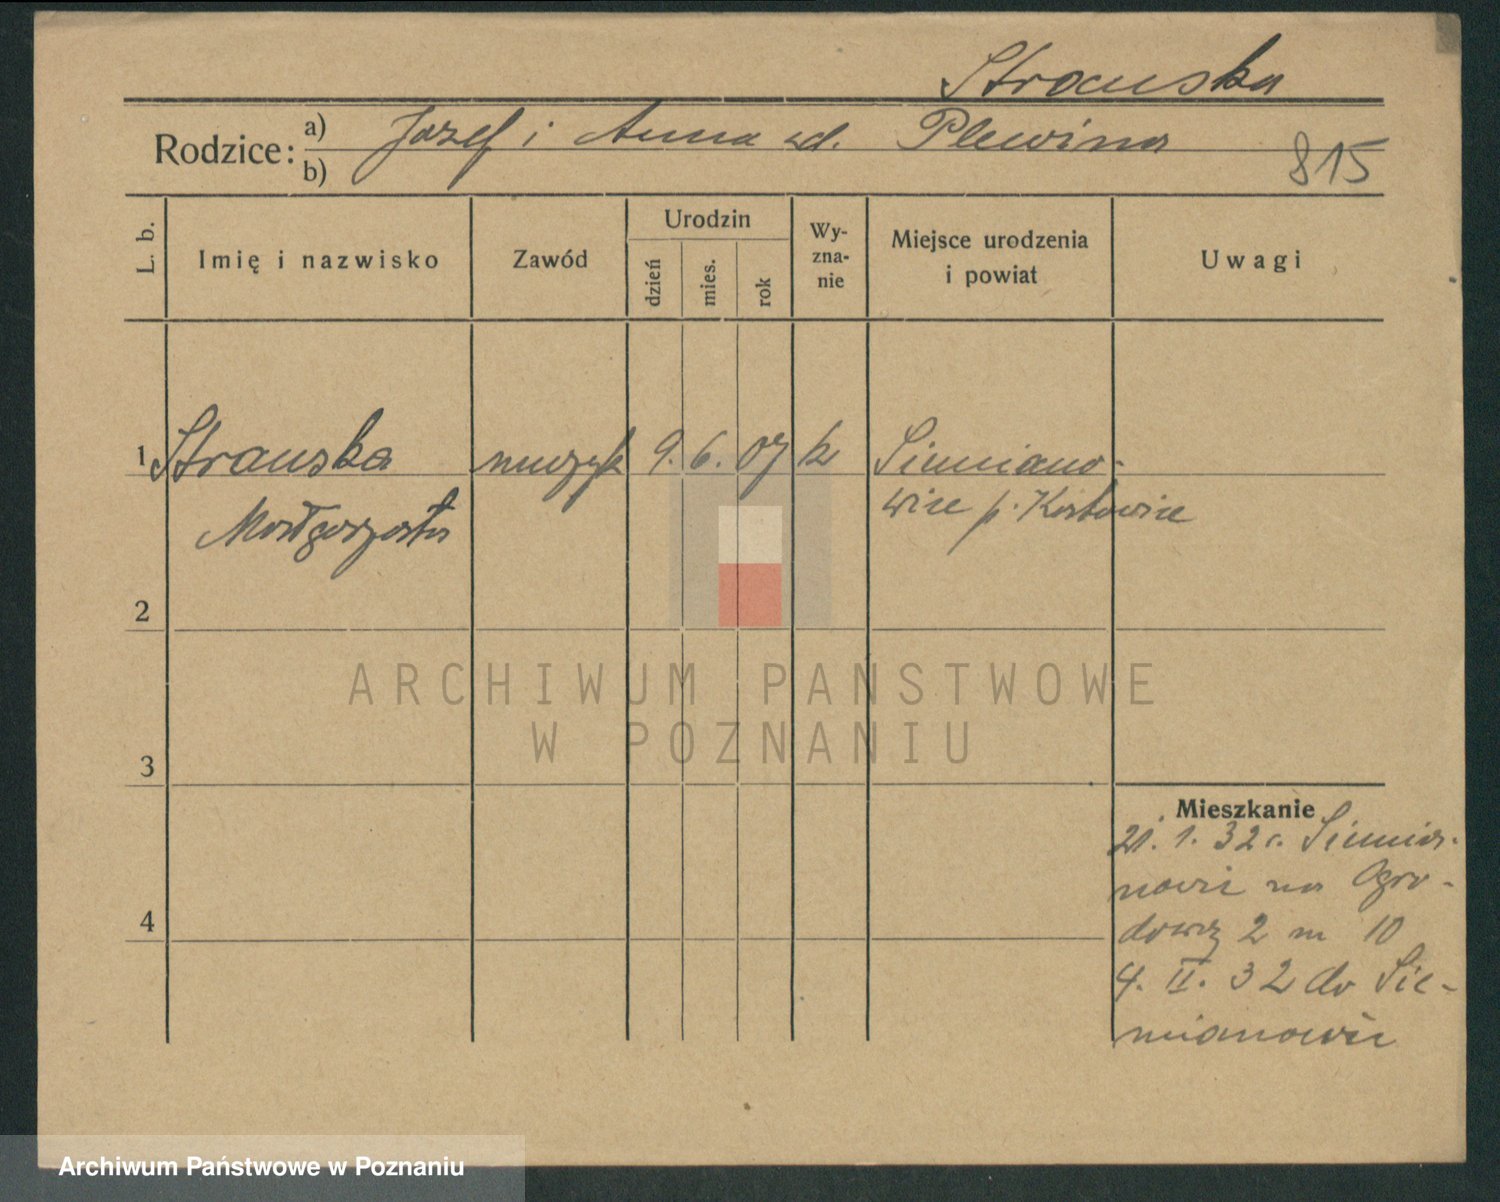 Strauska
Rodzice: a) Jozef i Anna zd. Plewina
b)
815
L. b.
Imię i nazwisko
Zawód
Urodzin
dzień
mies.
rok
Wy-
zna-
nie
Miejsce urodzenia
i powiat
Uwagi
1 Strauska muzyk 9. 6. 07 k Siemiano-
Małgorzata wice p. Katowice
2
ARCHIWUM PAŃSTWOWE
W POZNANIU
3
Mieszkanie
21. 1. 32 r. Siemia-
nowic na Ogro-
dową 2 m 10
4
4. II. 32 do Sie-
mianowic
Archiwum Państwowe w Poznaniu